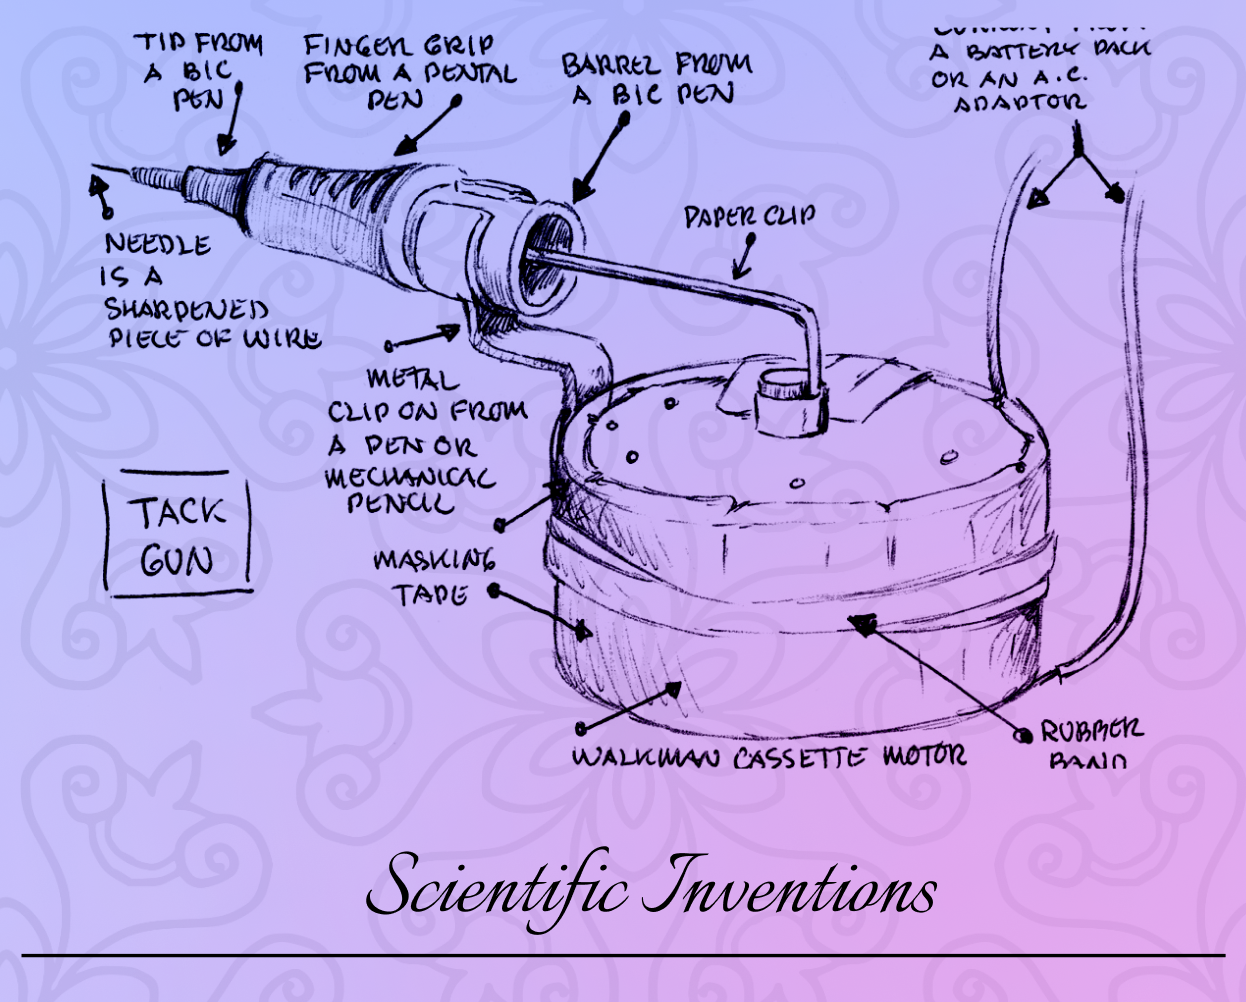 TIP FROM
A BIC
PEN
FINGER GRIP
FROM A DENTAL
PEN
BARREL FROM
A BIC PEN
A BATTERY PACK
OR AN A.C.
ADAPTOR
PAPER CLIP
NEEDLE
IS A
SHARPENED
PIECE OF WIRE
METAL
CLIP ON FROM
A PEN OR
MECHANICAL
PENCIL
TACK
GUN
MASKING
TAPE
WALKMAN CASSETTE MOTOR
RUBBER
BAND
Scientific Inventions